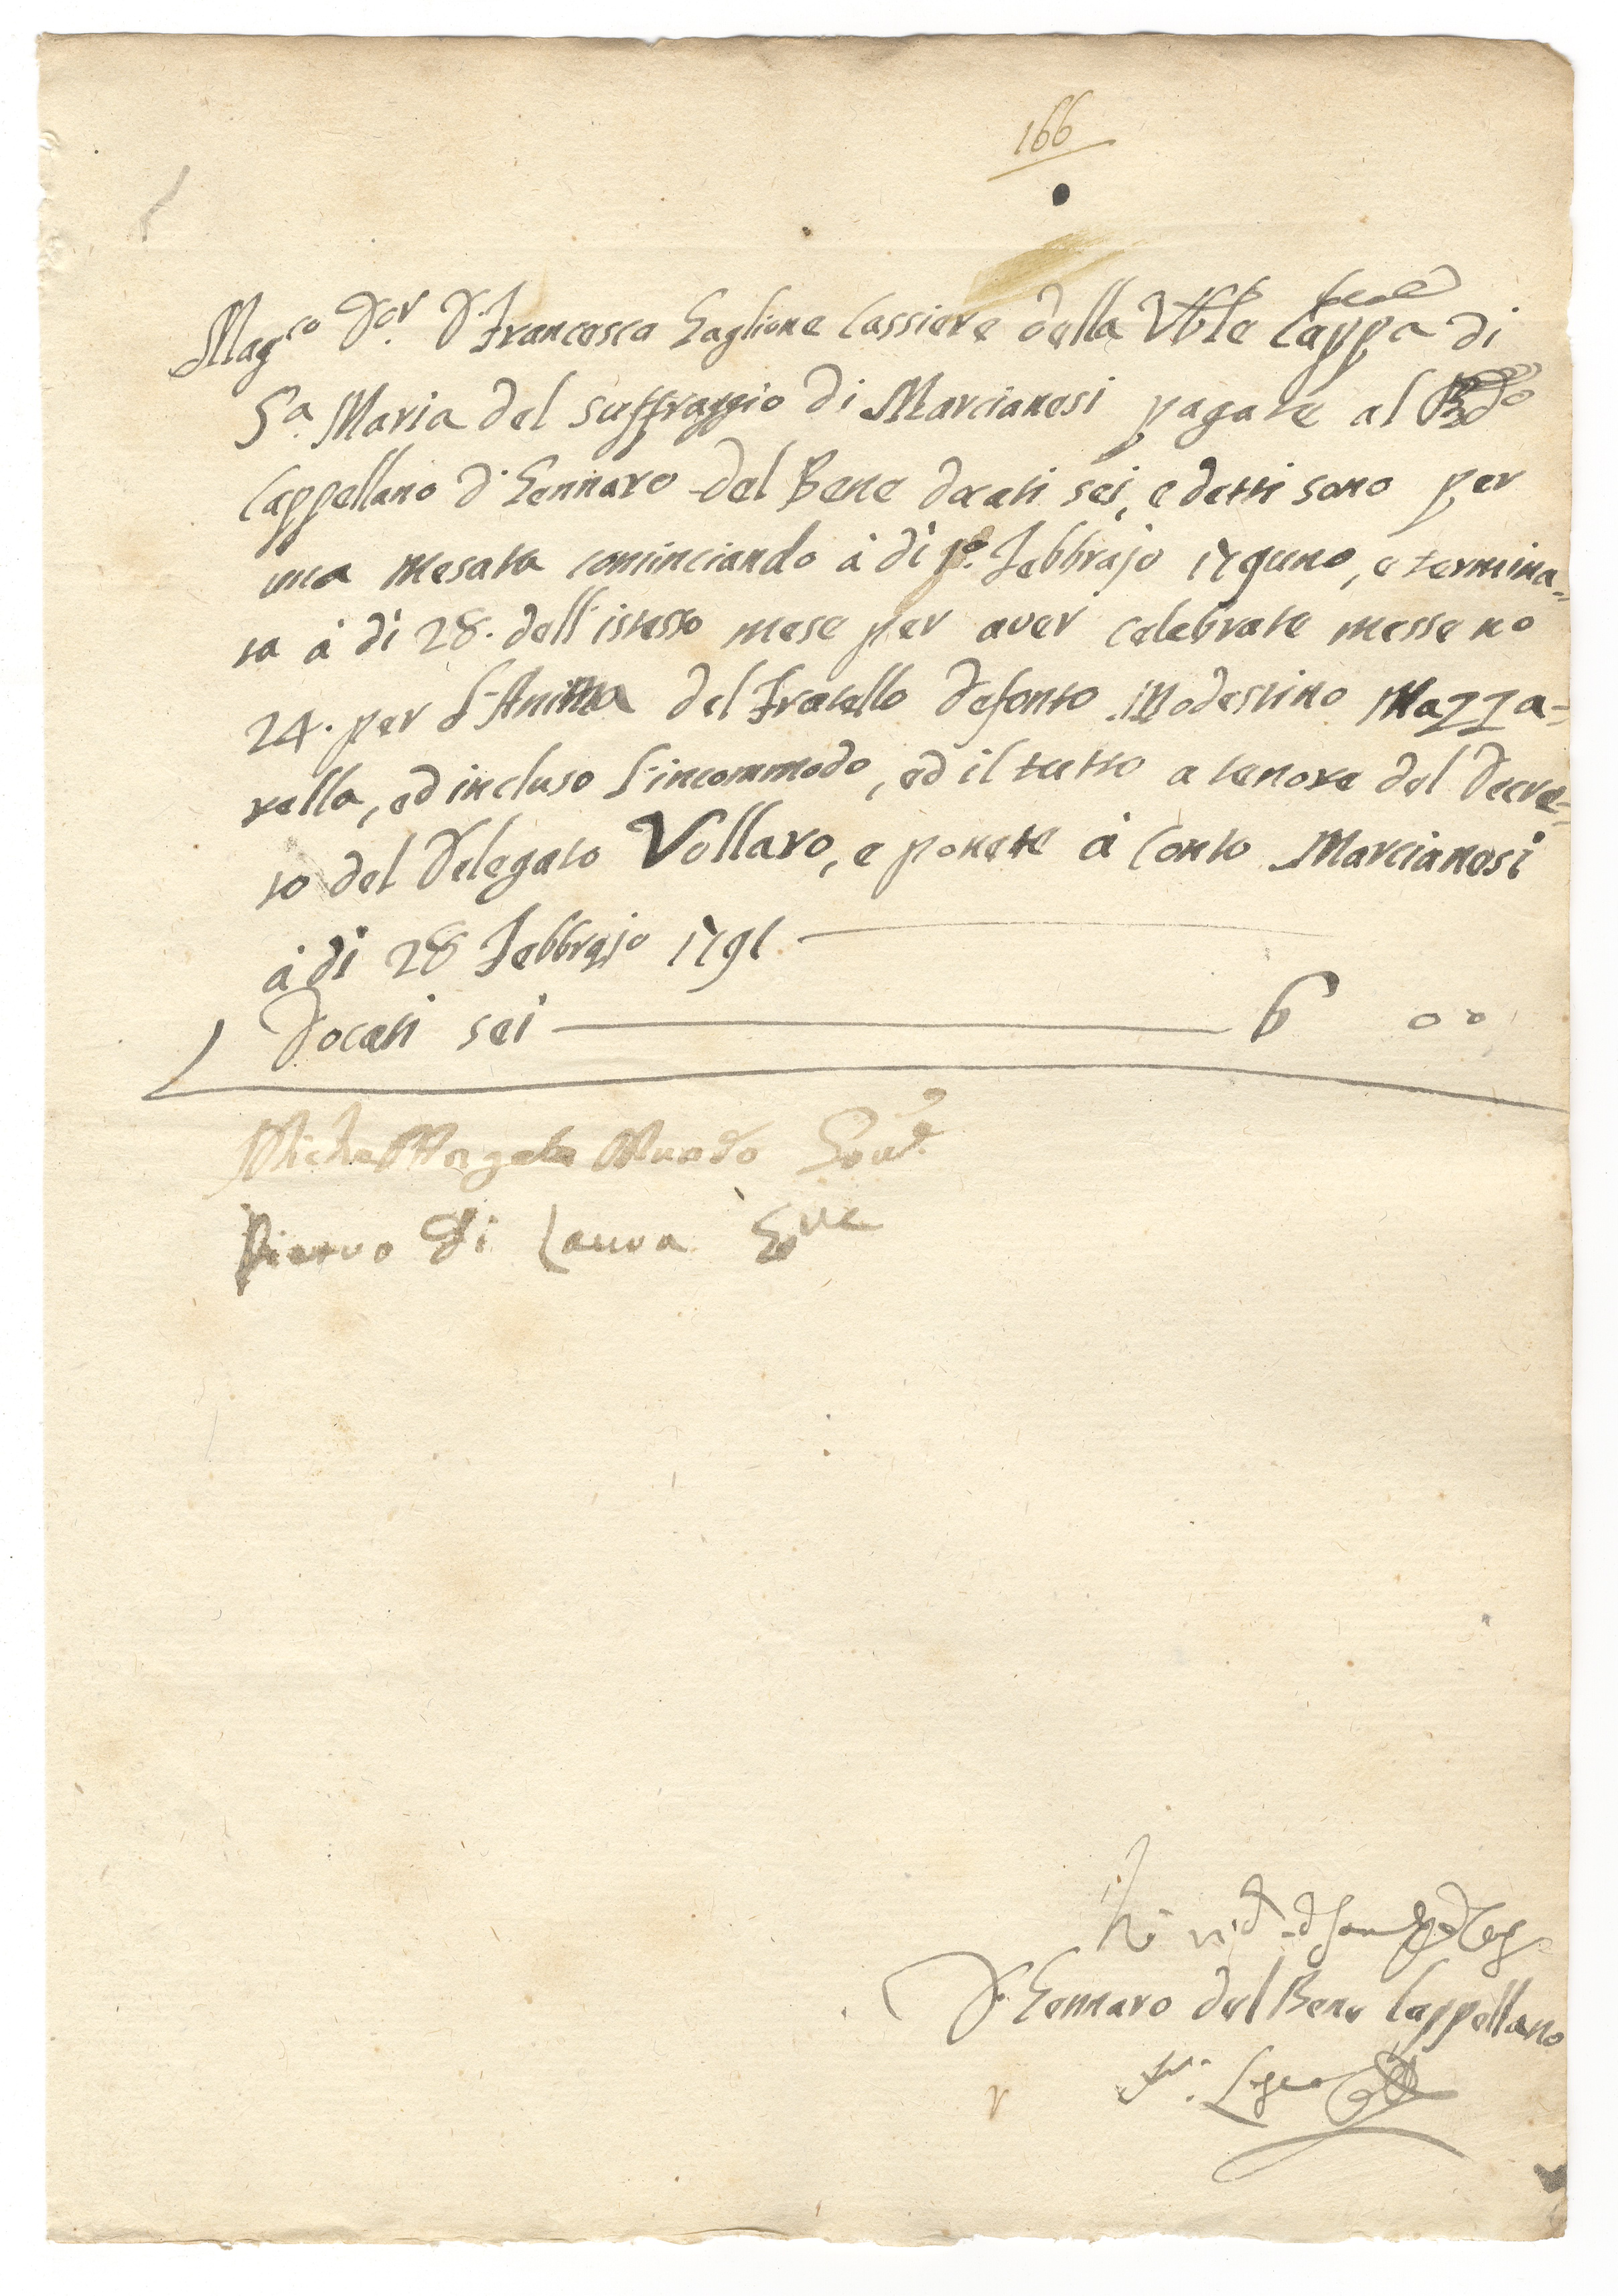 166
Mag.co D.or D. Francesco Gaglione Cassiere della Vble Cappa di
S.a Maria del suffraggio di Marcianesi pagate al Rdo
Cappellano D. Gennaro del Bene docati sei, e detti sono per
una mesata cominciando à di p.o Febbrajo 179uno, e termina=
ta à di 28. dell'istesso mese per aver celebrate messe no
24. per l'Anima del Fratello defonto Modestino Mazza=
rella, ed incluso l'incommodo, ed il tutto a tenore del Decre=
to del Delegato Vollaro, e ponete à conto Marcianesi
à di 28 Febbrajo 1791
Docati sei 6 00
Michel'Angelo Mundo Gov.e
Pietro di Laura Gove
D. Gennaro del Bene Cappellano